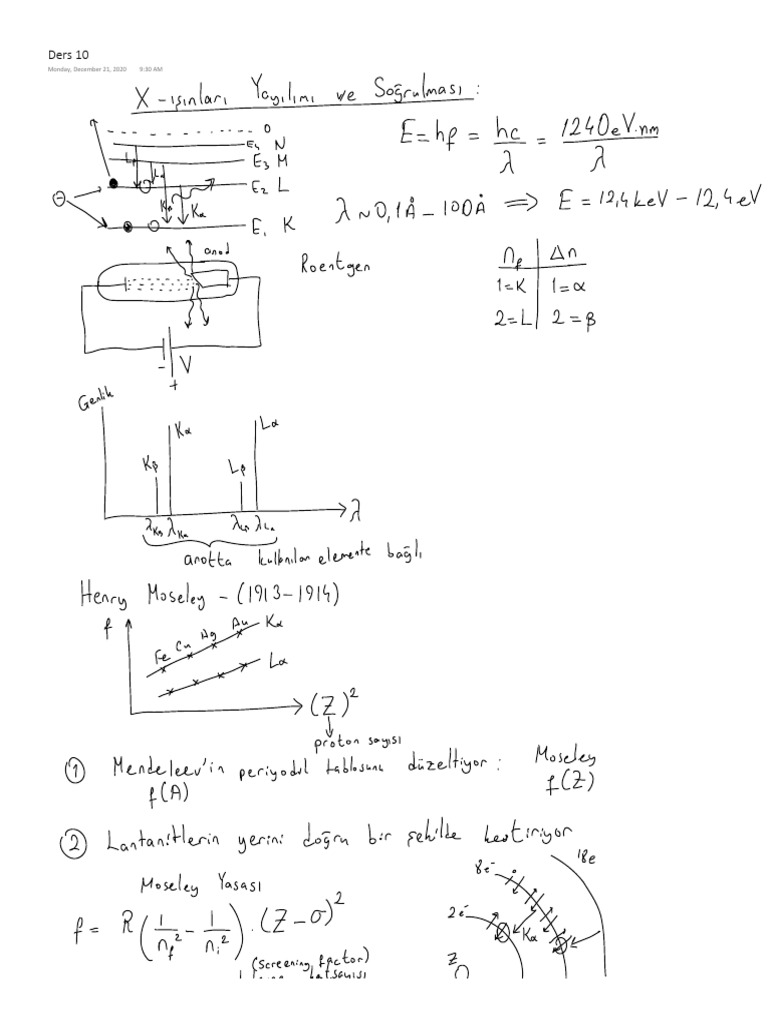 Ders 10
Monday, December 21, 2020 9:30 AM
X-ışınları Yayılımı ve Soğrulması:
0
E4 N
E3 M
E2 L
E1 K
Lβ
Lα
Kβ
Kα
E=hf = hc/λ = 1240eV.nm/λ
λ~0,1Å-100Å ⇒ E=12,4keV-12,4eV
anod
Roentgen
nf | Δn
1=K | 1=α
2=L | 2=β
- V
+
Genlik
Kβ Kα Lβ Lα
λKβ λKα λLβ λLα λ
anotta kullanılan elemente bağlı
Henry Moseley - (1913-1914)
f
Fe Cu Ag Au Kα
Lα
(Z)²
proton sayısı
① Mendeleev'in periyodik tablosunu düzeltiyor: Moseley
f(A) f(Z)
② Lantanitlerin yerini doğru bir şekilde kestiriyor
Moseley Yasası
f = R(1/nf² - 1/ni²).(Z-σ)²
(screening factor)
2e⁻ 8e⁻ 18e
Kα
Z